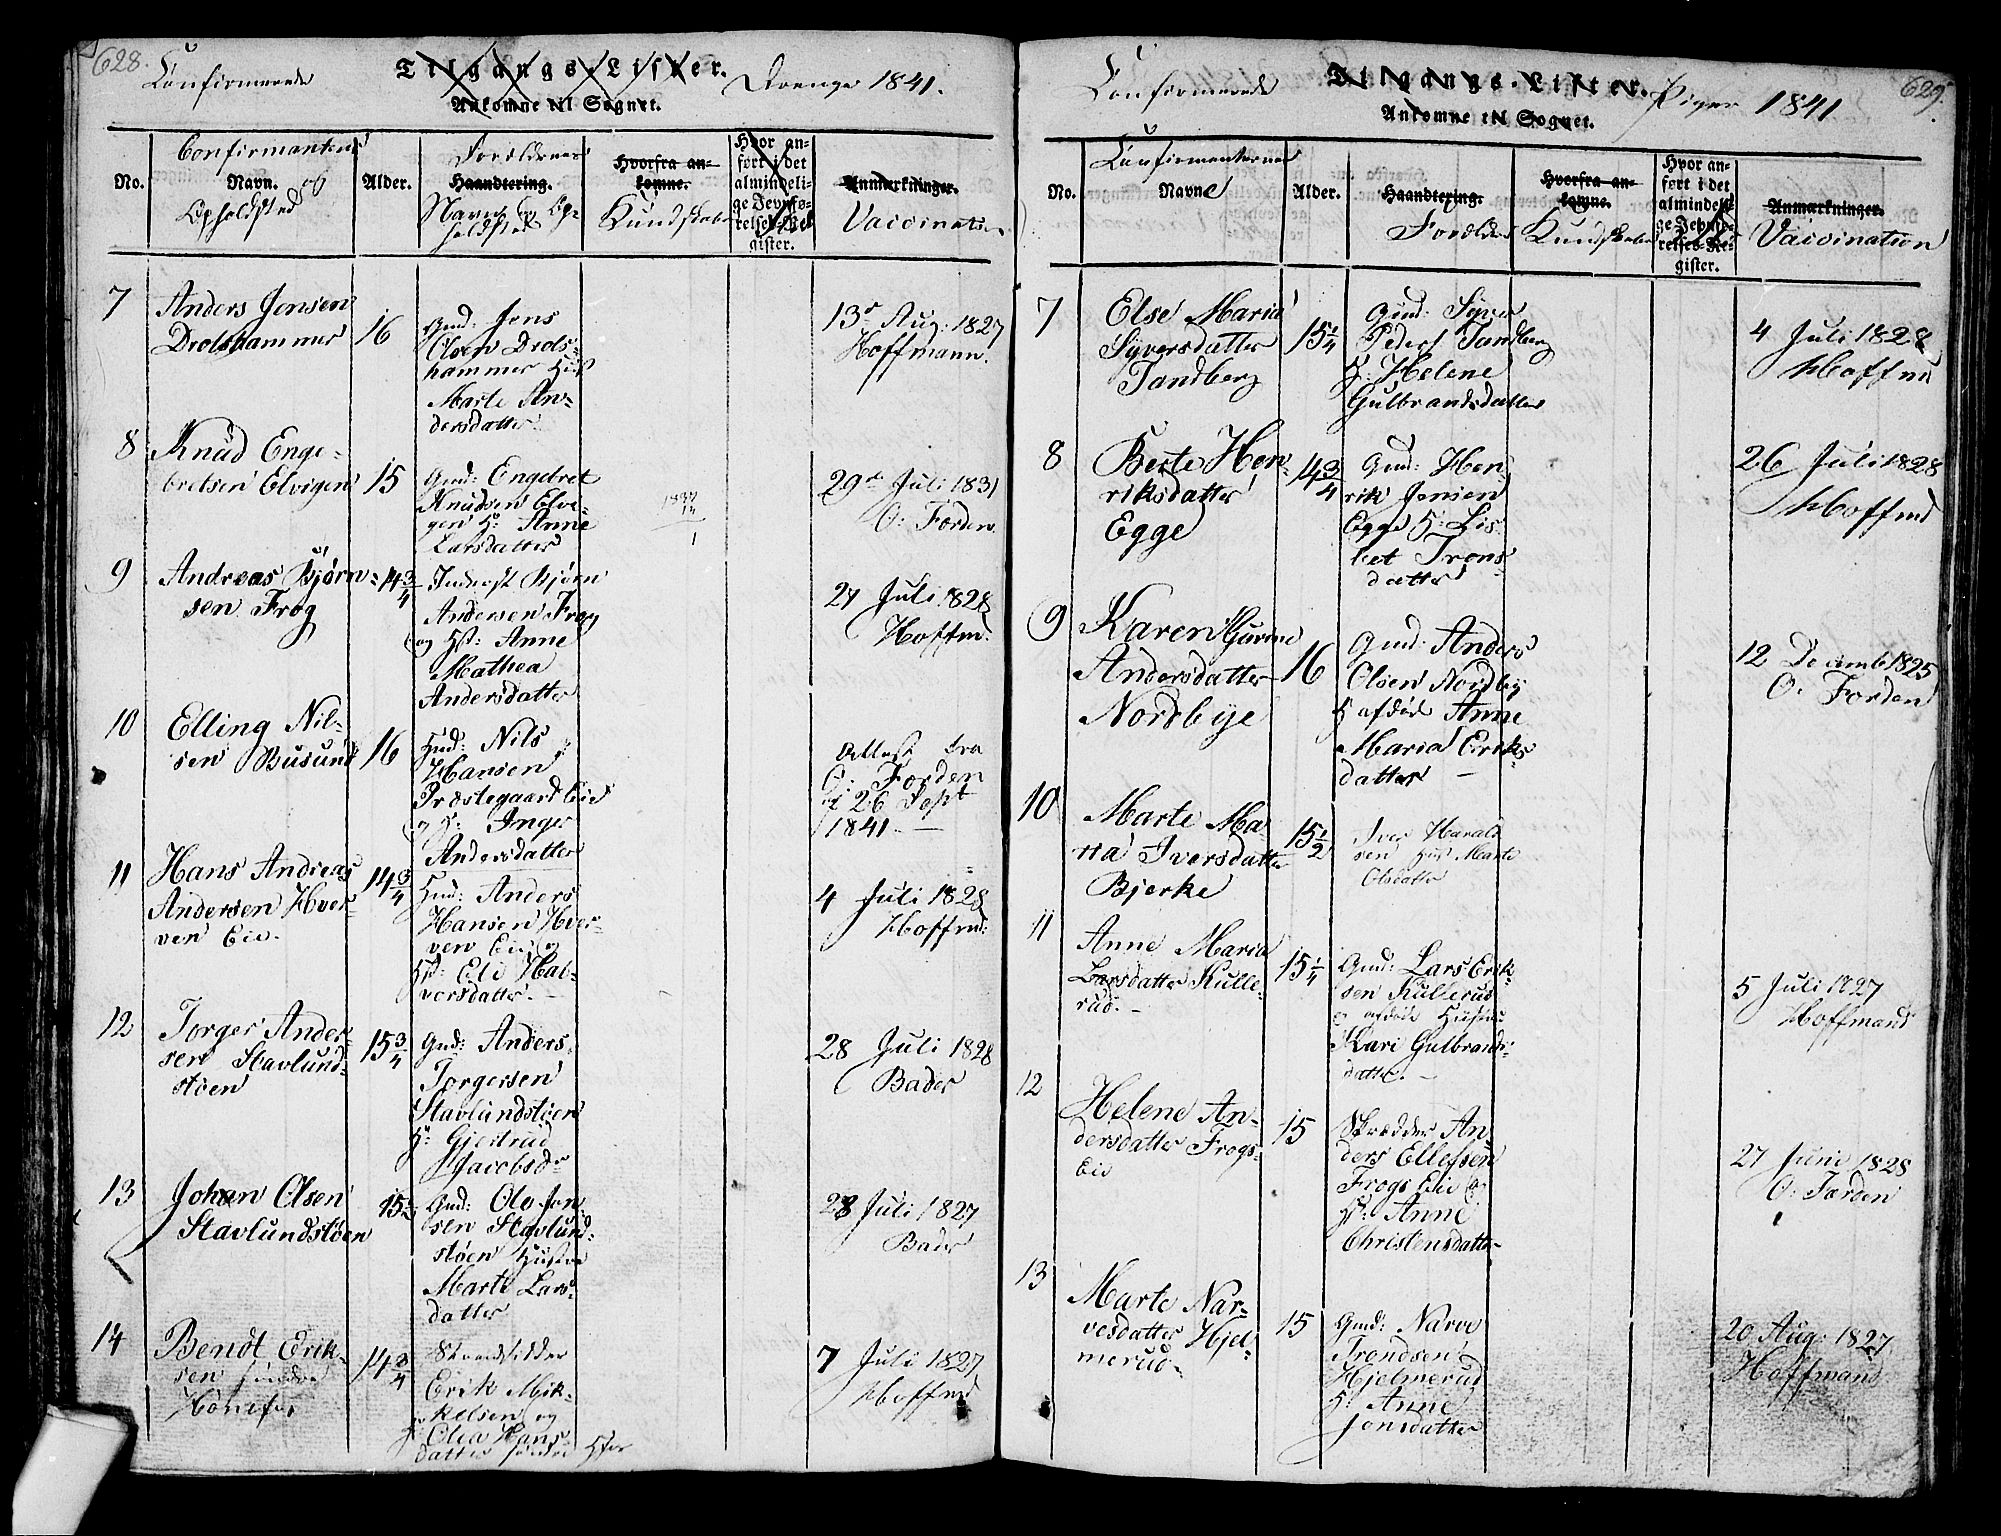 628.
Confirmerede
Tilgangs-Lister.
Drenge 1841.
Ankomne til Sognet.
No.
Confirmantens
Navn. og
Opholdsted
Alder.
Forældrenes
Haandtering.
Navn og Op-
holdsted
Hvorfra an-
komne.
Kundskaber
Hvor an-
ført i det
almindeli-
ge Jevnfø-
relses-Re-
gister.
Anmærkninger.
Vaccination
7
Anders Jensen
Drolshammer
16
Gmd: Jens
Olsen Drols-
hammer Hust
Marte An-
dersdatter
13de Aug: 1827
Hoffmann.
8
Knud Enge-
bretsen Elvigen
15
Gmd: Engebret
Knudsen Elve-
gen H: Anne
Larsdatter
29de Juli 1831
O: Forden
9
Andreas Bjørn-
sen Frog
14 3/4
Inderst Bjørn
Andersen Frog
og Hst: Anne
Mathea
Andersdatter
27 Juli 1828
Hoffmd.
10
Elling Nil-
sen Busund
16
Hmd: Nils
Hansen
Præstegaard Eie
og H: Inger
Andersdatter
Attest fra
O: Forden
af 26 Sept
1841. —
11
Hans Andreas
Andersen Hver-
ven Eie.
14 3/4
Hmd: Anders
Hansen Hver-
ven Eie og
Hst: Eli Hal-
vorsdatter. —
4 Juli 1828
Hoffmd:
12
Torger Ander-
sen Stavlund-
støen
15 3/4
Gmd: Anders
Torgersen
Stavlundstøen
H: Gjertrud
Jacobsdr
28 Juli 1828
Bader
13
Johan Olsen
Stavlundstøen
15 1/2
Gmd: Ole Jen-
sen Stavlund-
støen Hustru
Marte Lars-
datter
28 Juli 1827
Bader
14
Bendt Erik-
sen søndre
Hønefos
14 3/4
Strandsidder
Erik Mik-
kelsen og
H: Olea Hans-
datter søndre Hfos
7 Juli 1827
Hoffmd
629.
Confirmerede
Tilgangs-Lister.
Piger 1841
Ankomne til Sognet.
No.
Confirmanternes
Navne
Alder.
Haandtering.
Forældre
Hvorfra an-
komne.
Kundskaber
Hvor an-
ført i det
almindeli-
ge Jevnfø-
relses-Re-
gister.
Anmærkninger.
Vaccination
7
Else Maria
Syversdatter
Tandberg
15 1/4
Gmd: Syver
Peders Tandberg
H: Helene
Gulbrandsdatter
4 Juli 1828
Hoffmd
8
Berte Hen-
riksdatter
Egge
14 3/4
Gmd: Hen-
rik Jensen
Egge H: Lis-
bet Trons-
datter
26 Juli 1828
Hoffmd
9
Karen Gurine
Andersdatter
Nordbye
16
Gmd: Anders
Olsen Nordby
H afdøde Anne
Maria Eriks-
datter —
12 Decemb 1825
O: Forden
10
Marte Ma-
ria Iversdatter
Bjerke
15 1/2
Iver Harald-
sen Hust Marte
Olsdatter
11
Anne Maria
Larsdatter Kulle-
rud. —
15 1/4
Gmd: Lars Erik-
sen Kullerud
og afdøde Hustru
Kari Gulbrands-
datter. —
5 Juli 1827
Hoffmand
12
Helene An-
dersdatter Frogs-
Eie
15
Skrædder An-
ders Ellefsen
Frogs Eie og
Hst: Anne
Christensdatter
27 Juni 1828
O: Farden
13
Marte Nar-
vesdatter Hjel-
merud.
15
Gmd: Narve
Trondsen
Hjelmerud
H: Anne
Jensdatter
20 Aug: 1827.
Hoffmand